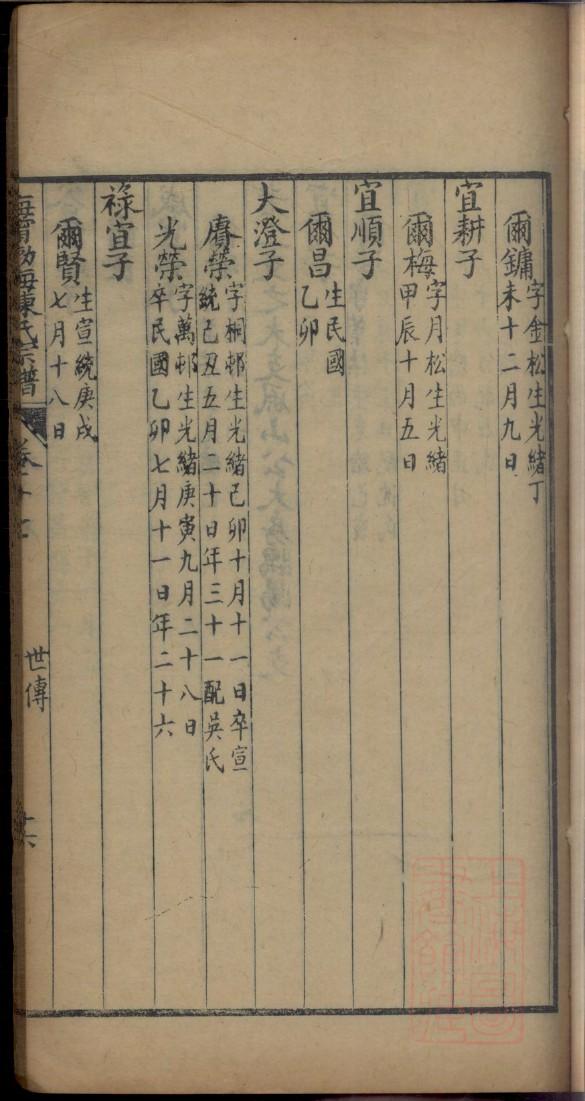 爾鏞字金松生光緒丁
未十二月九日
宜耕子
爾梅字月松生光緒
甲辰十月五日
宜順子
爾昌生民國
乙卯
大澄子
賡榮字桐邨生光緒己卯十月十一日卒宣
統己丑五月二十日年三十一配吳氏
光榮字萬邨生光緒庚寅九月二十八日
卒民國乙卯七月十一日年二十六
祿宜子
爾賢生宣統庚戌
七月十八日
海陳氏宗譜
世傳